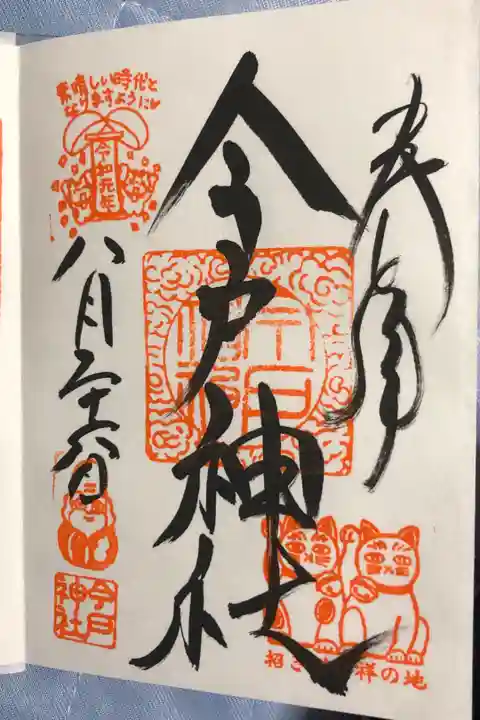 奉拝
今戸神社
素晴しい時代と
なりますように
令和元年
八月二十六日
今戸神社
招き 祥の地